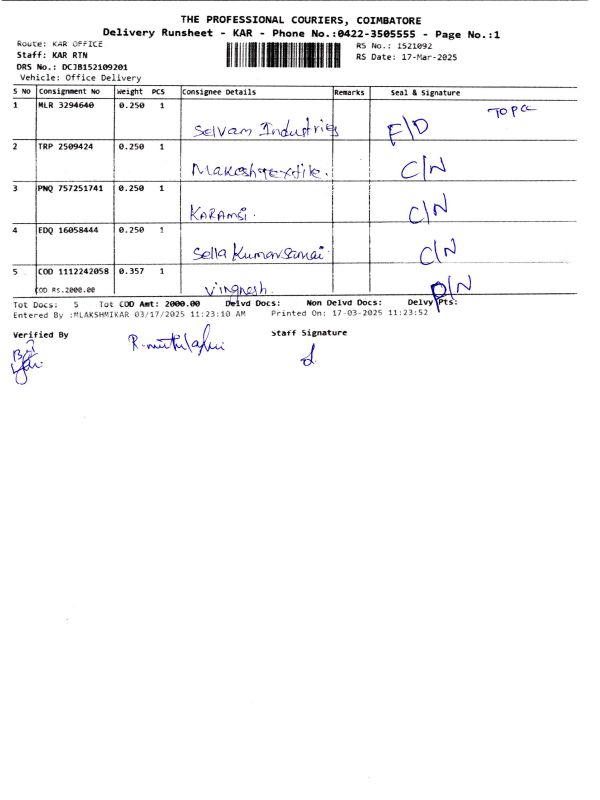 THE PROFESSIONAL COURIERS, COIMBATORE
Delivery Runsheet - KAR - Phone No.:0422-3505555 - Page No.:1
Route: KAR OFFICE
RS No.: 1521092
Staff: KAR RTN
RS Date: 17-Mar-2025
DRS No.: DCJB152109201
Vehicle: Office Delivery
S NO Consignment No Weight PCS Consignee Details Remarks Seal & Signature
1 MLR 3294640 0.250 1
TO PCC
Selvam Industries F/D
2 TRP 2509424 0.250 1
C/N
3 PNQ 757251741 0.250 1
KARAMSi. C/N
4 EDQ 16058444 0.250 1
Sella Kumarsamai. C/N
5 COD 1112242058 0.357 1
COD RS.2000.00 Vingnesh. D/N
Tot Docs: 5 Tot COD Amt: 2000.00 Delvd Docs: Non Delvd Docs: Delvy Pts:
Entered By :MLAKSHMIKAR 03/17/2025 11:23:10 AM Printed On: 17-03-2025 11:23:52
Verified By Staff Signature